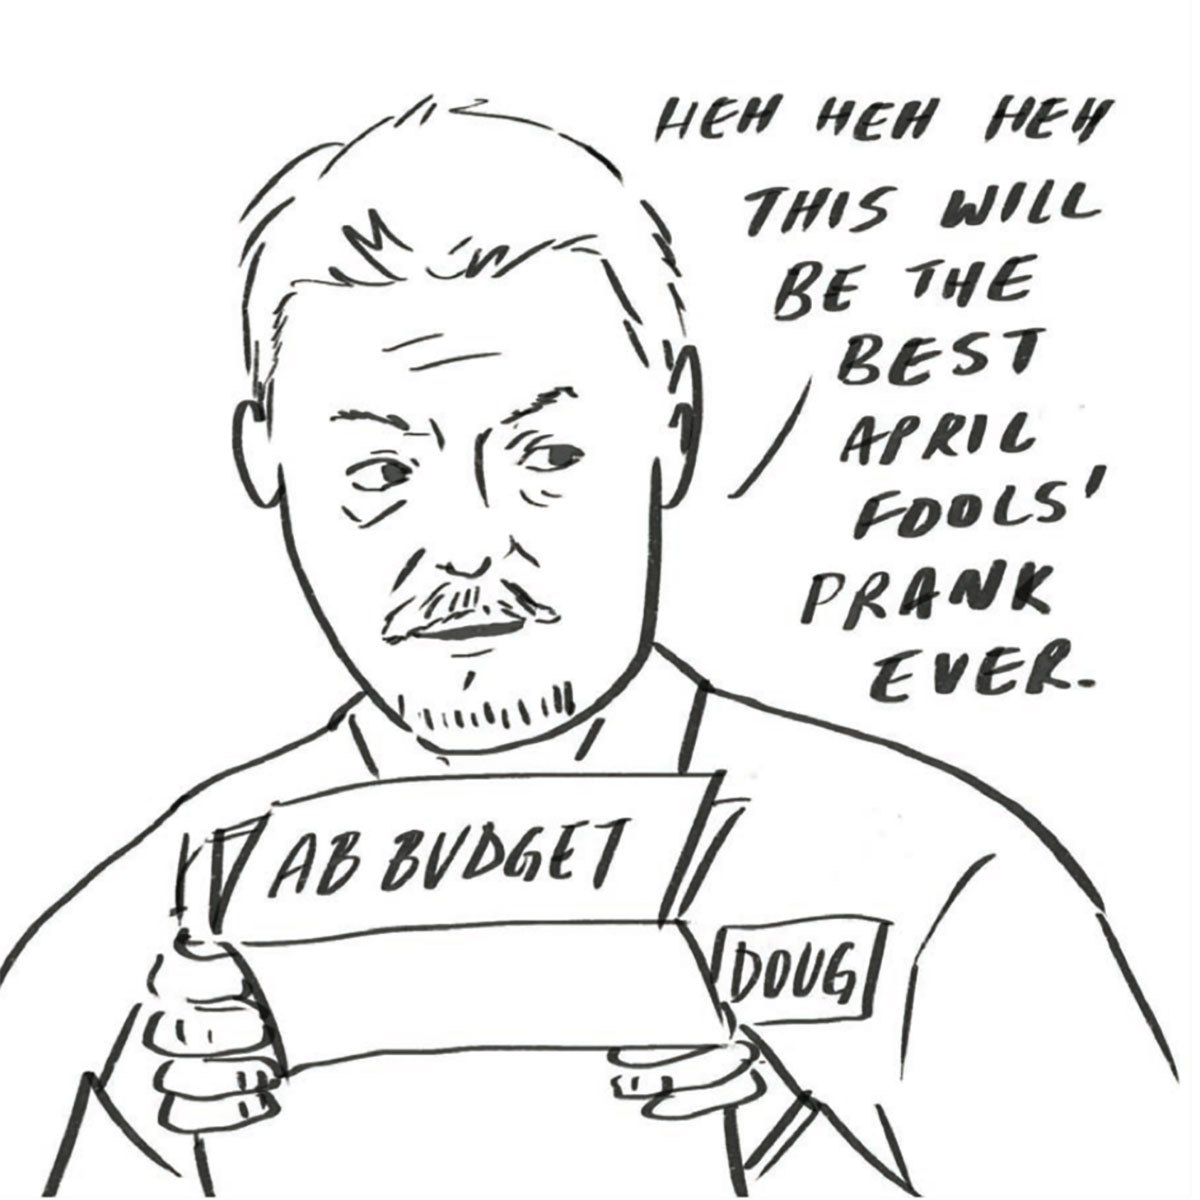 HEH HEH HEH
THIS WILL
BE THE
BEST
APRIL
FOOLS'
PRANK
EVER.
AB BUDGET
DOUG